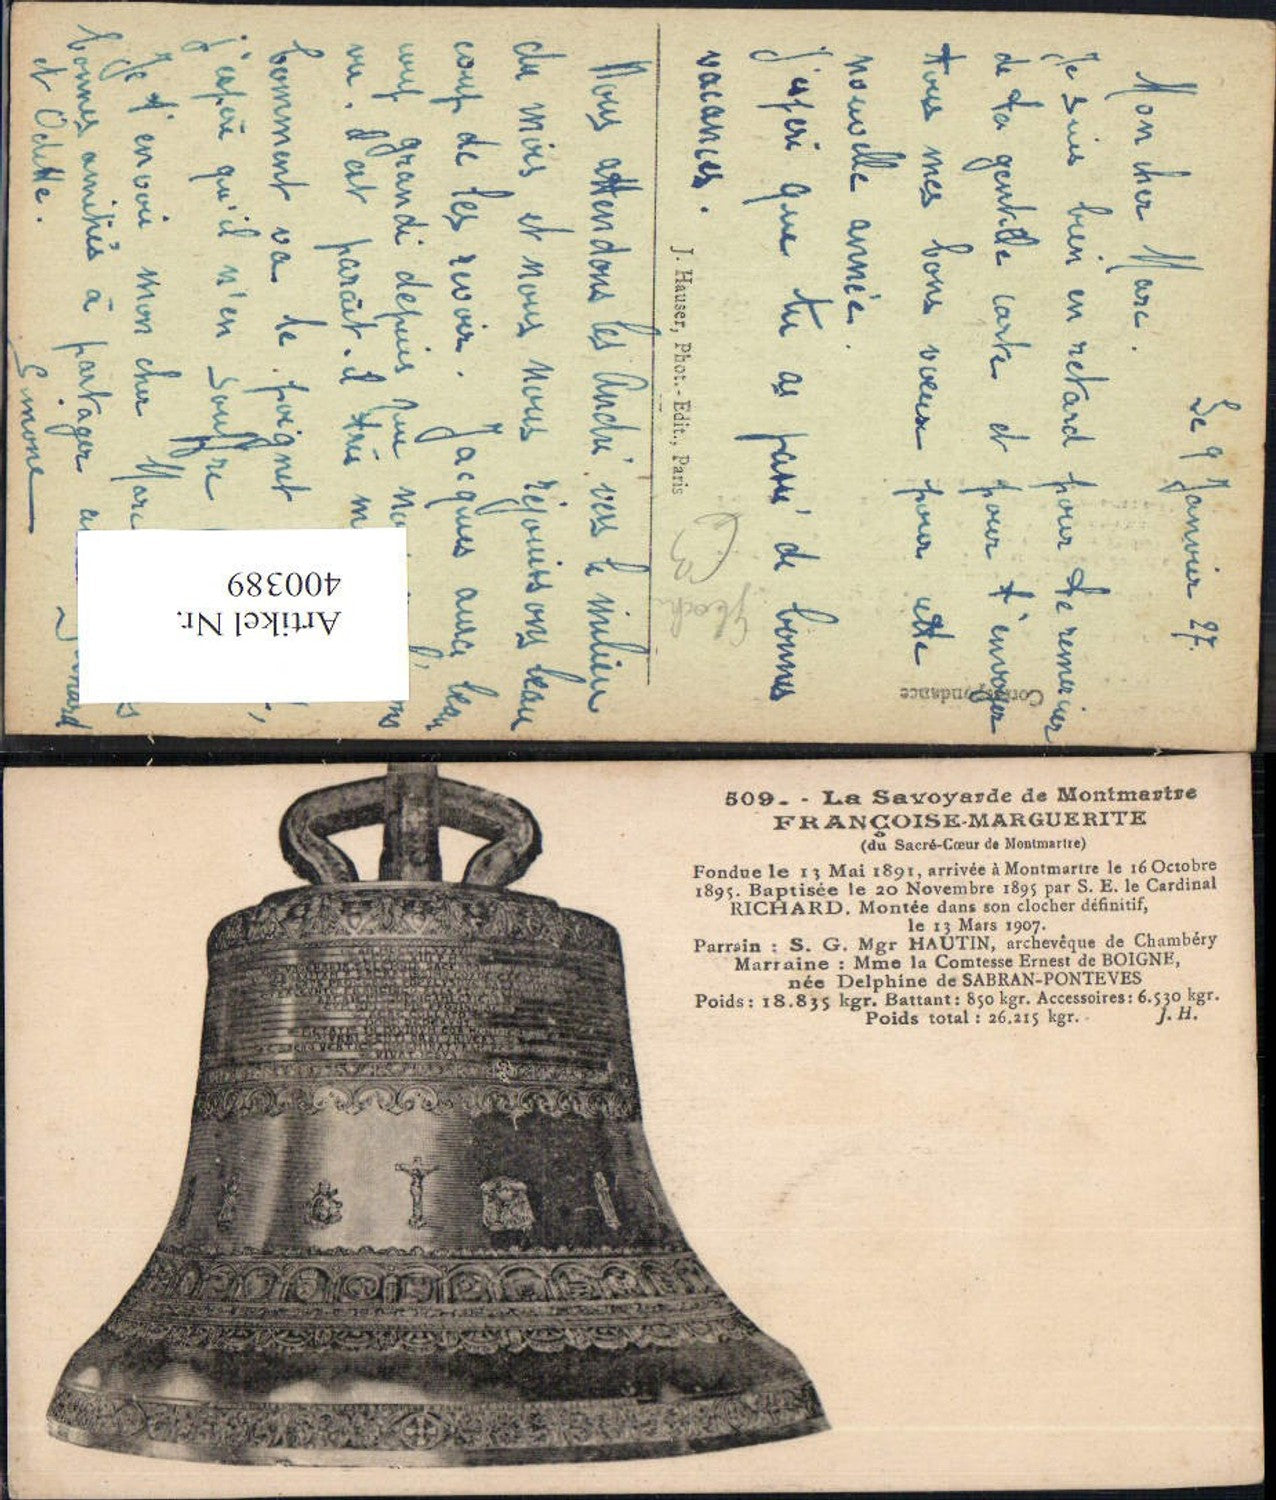 Le 9 Janvier 27.
Mon cher Marc.
Je suis bien en retard pour te remercier
de ta gentille carte et pour t'envoyer
tous mes bons voeux pour cette
nouvelle année.
J'espère que tu as passé de bonnes
vacances.
Nous attendons les André vers le milieu
du mois et nous nous réjouissons beau
coup de les revoir. Jacques aura beau
coup grandi depuis que
vu. Il est parait-il très
Comment va le poignet
j'espère qu'il n'en souffre
Je t'envoie mon cher Marc
bonnes amitiés à partager
et Odette.
Simone
Correspondance
J. Hauser, Phot.-Edit., Paris
Artikel Nr.
400389
509. - La Savoyarde de Montmartre
FRANÇOISE-MARGUERITE
(du Sacré-Cœur de Montmartre)
Fondue le 13 Mai 1891, arrivée à Montmartre le 16 Octobre
1895. Baptisée le 20 Novembre 1895 par S. E. le Cardinal
RICHARD. Montée dans son clocher définitif,
le 13 Mars 1907.
Parrain : S. G. Mgr HAUTIN, archevêque de Chambéry
Marraine : Mme la Comtesse Ernest de BOIGNE,
née Delphine de SABRAN-PONTEVES
Poids : 18.835 kgr. Battant : 850 kgr. Accessoires : 6.530 kgr.
Poids total : 26.215 kgr. - J. H.